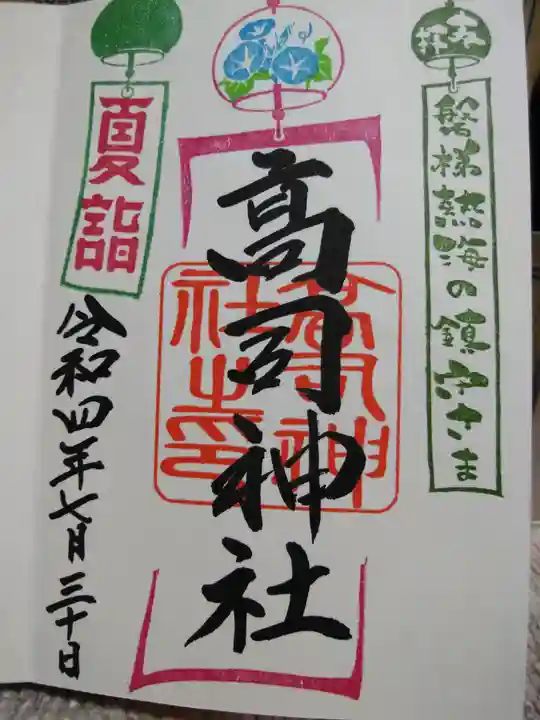 奉拝
磐梯熱海の鎮守さま
高司神社
高司神社之印
夏詣
令和四年七月三十日